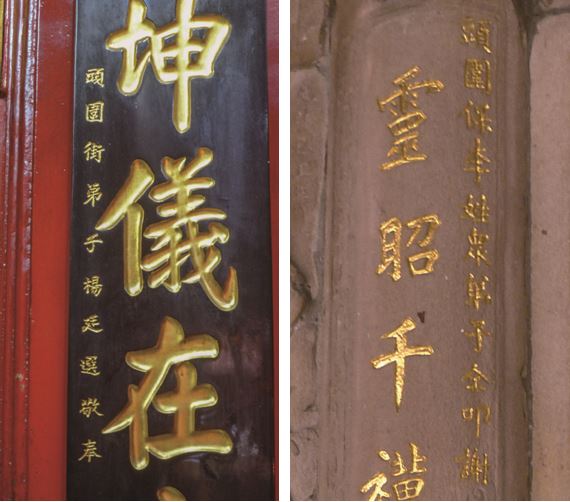 坤儀在
頭圍街弟子楊廷選敬奉
頭圍保李姓眾弟子仝叩謝
靈昭千禩